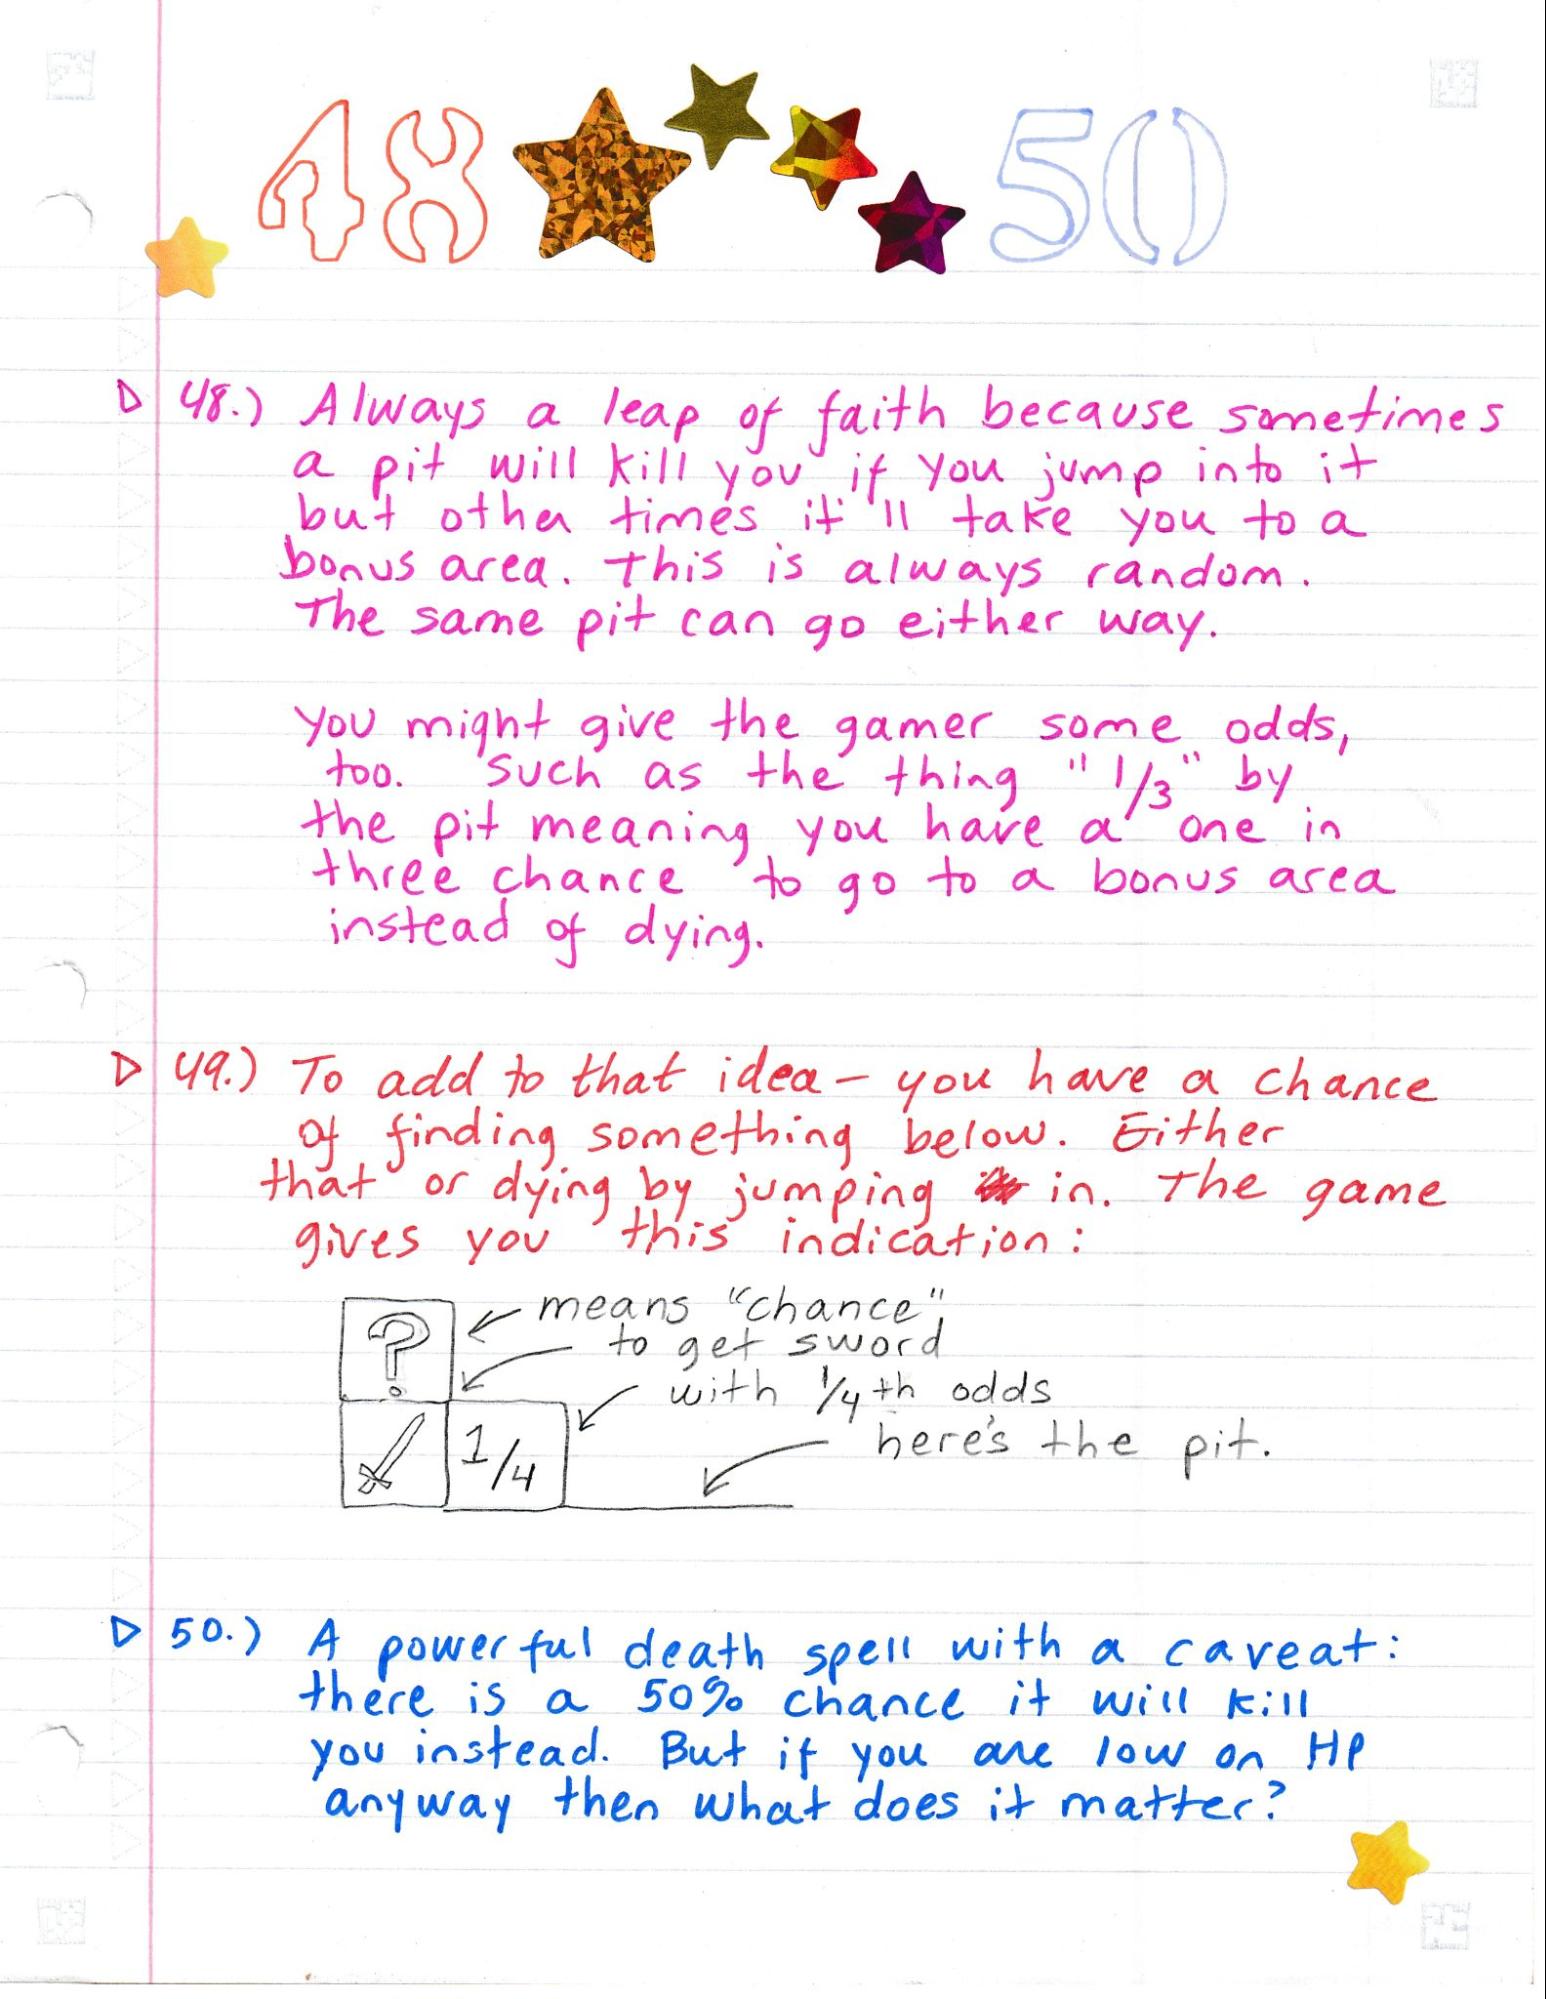 48 50
48.) Always a leap of faith because sometimes
a pit will kill you if you jump into it
but other times it'll take you to a
bonus area. This is always random.
The same pit can go either way.
You might give the gamer some odds,
too. Such as the thing "1/3" by
the pit meaning you have a one in
three chance to go to a bonus area
instead of dying.
49.) To add to that idea - you have a chance
of finding something below. Either
that or dying by jumping in. The game
gives you this indication:
? means "chance",
to get sword
with 1/4th odds
1/4 here's the pit.
50.) A powerful death spell with a caveat:
there is a 50% chance it will kill
you instead. But if you are low on HP
anyway then what does it matter?